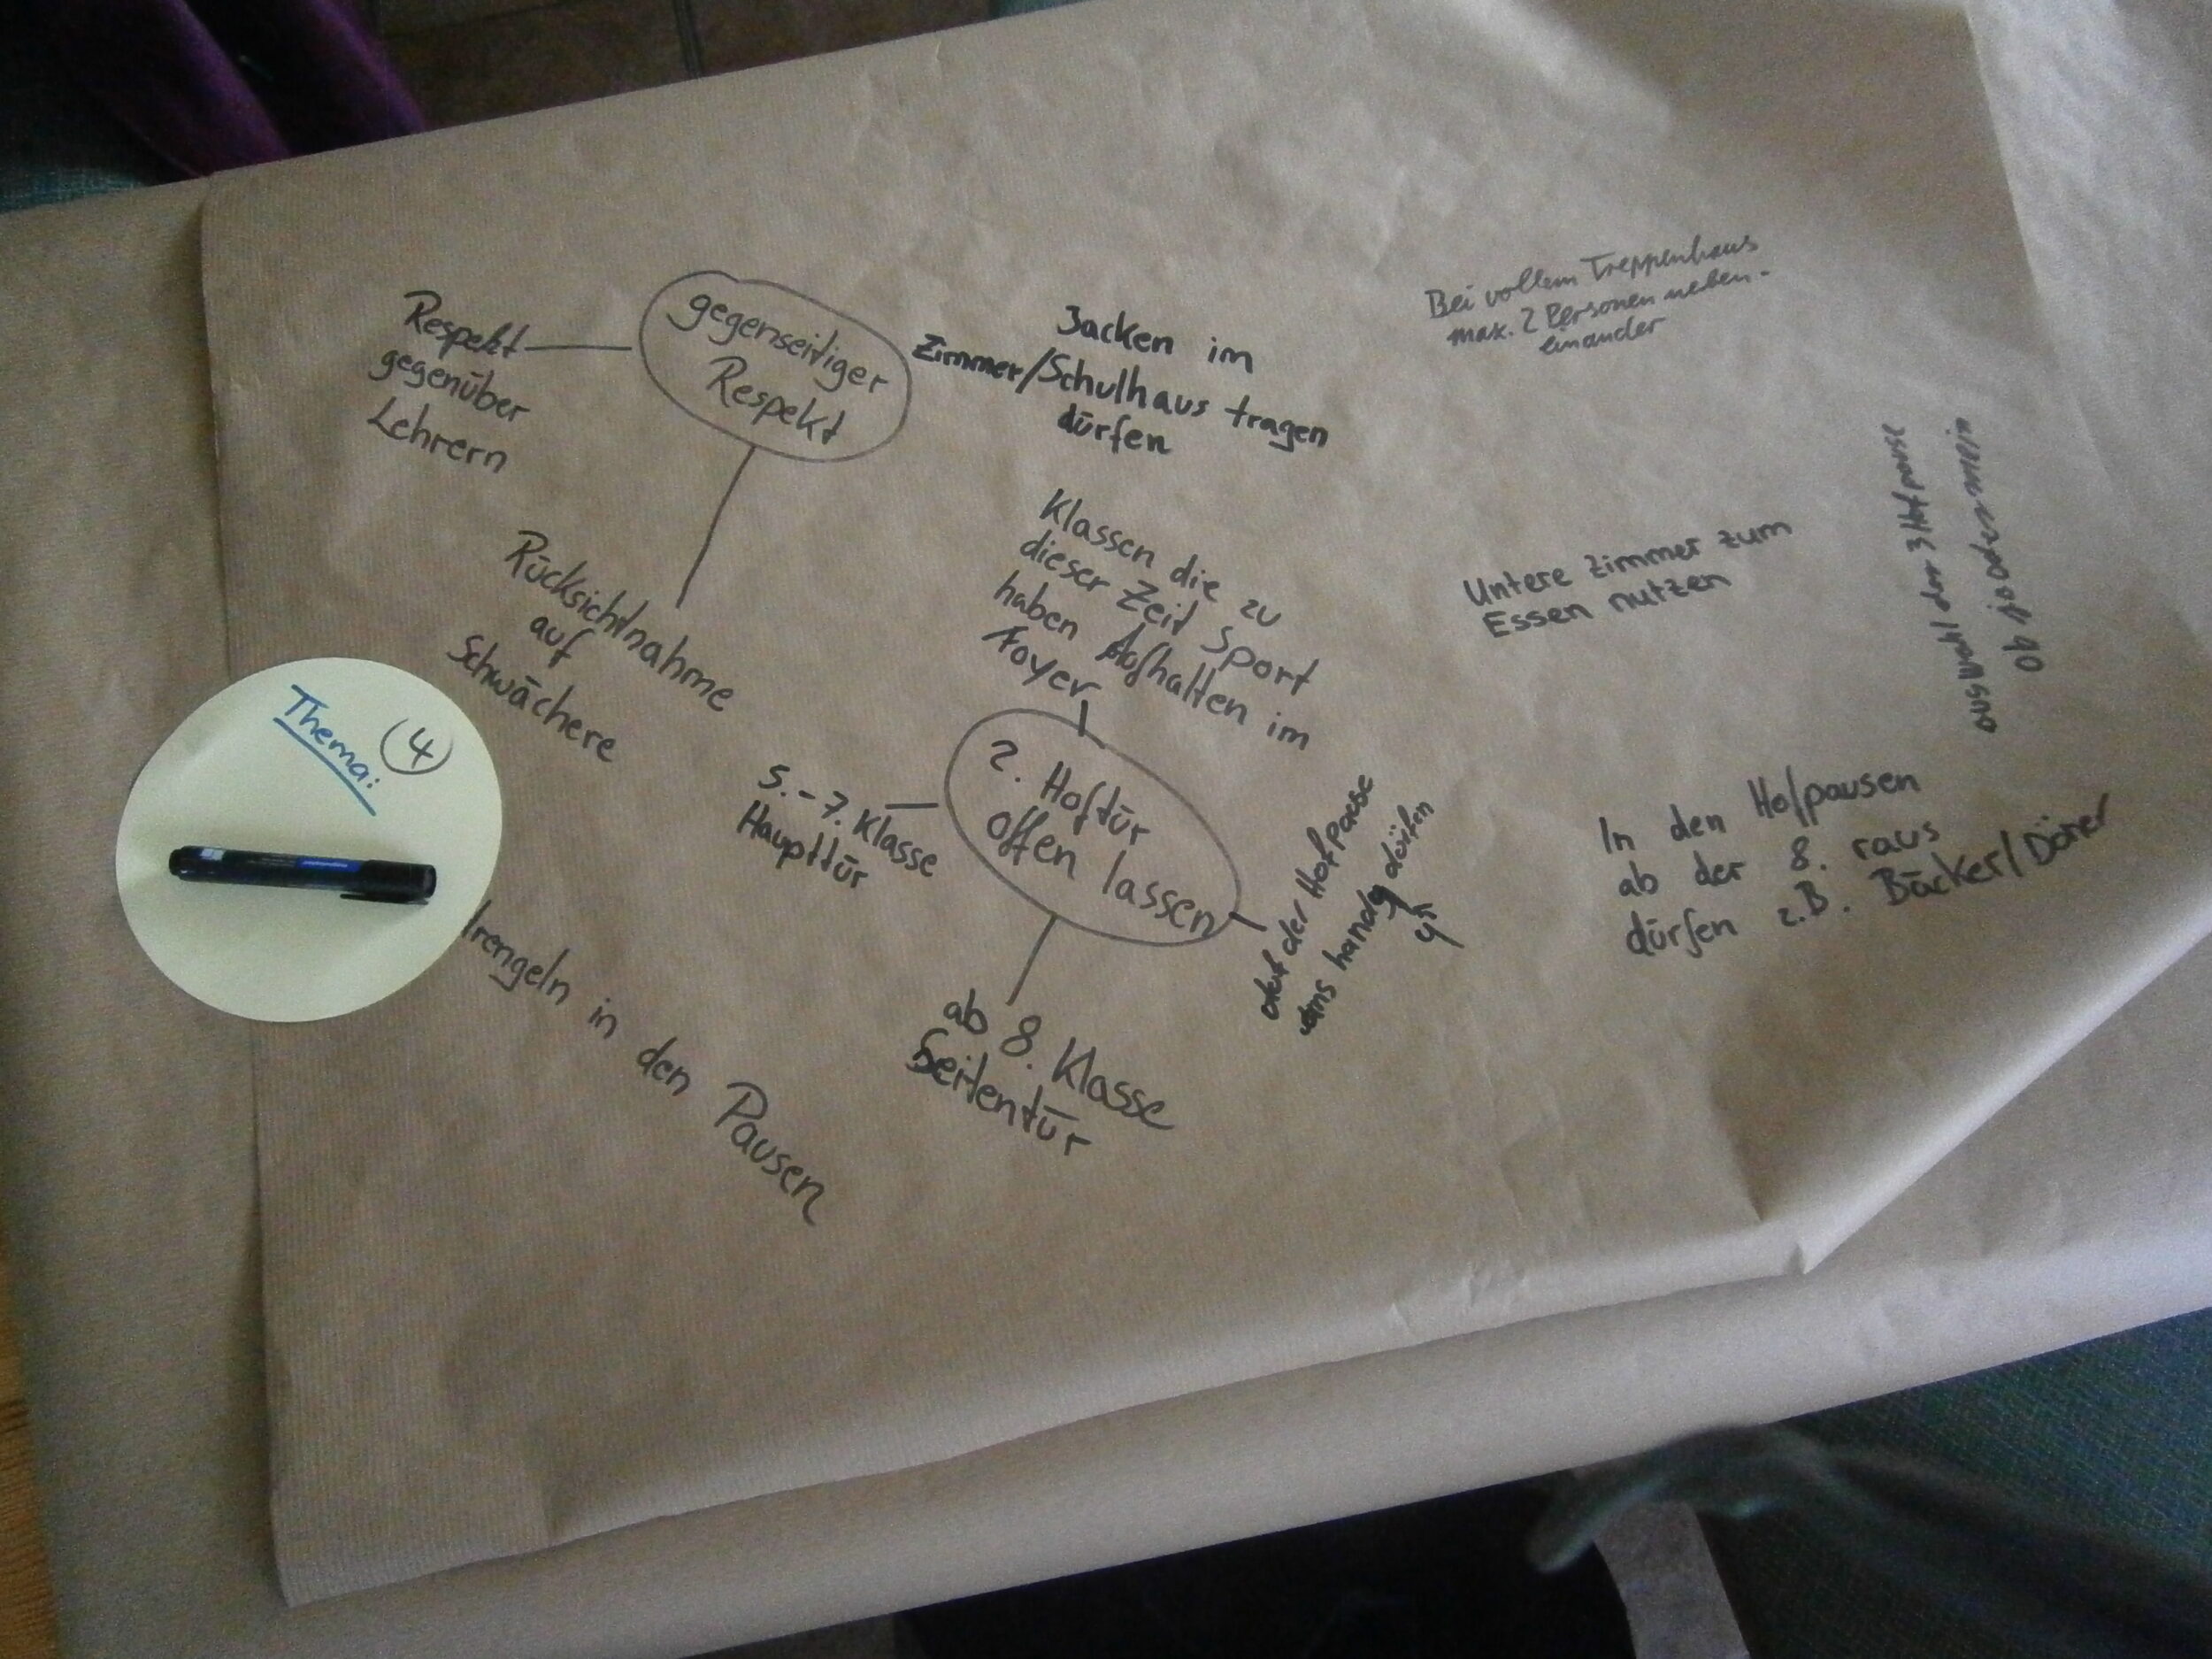 Respekt
gegenüber
Lehrern
gegenseitiger
Respekt
Rücksichtnahme
auf
Schwächere
Jacken im
Zimmer/Schulhaus tragen
dürfen
Bei vollem Treppenhaus
max. 2 Personen neben-
einander
Klassen die zu
dieser Zeit Sport
haben Aufhalten im
Foyer
2. Hoftür
offen lassen
5.-7. Klasse
Haupttür
ab 8. Klasse
Seitentür
der Hofpause
dürfen
Untere Zimmer zum
Essen nutzen
auswahl der 3 Hofpause
ob ja oder nein
In den Hofpausen
ab der 8. raus
dürfen z.B. Bäcker/Döner
Thema:
4
in den Pausen